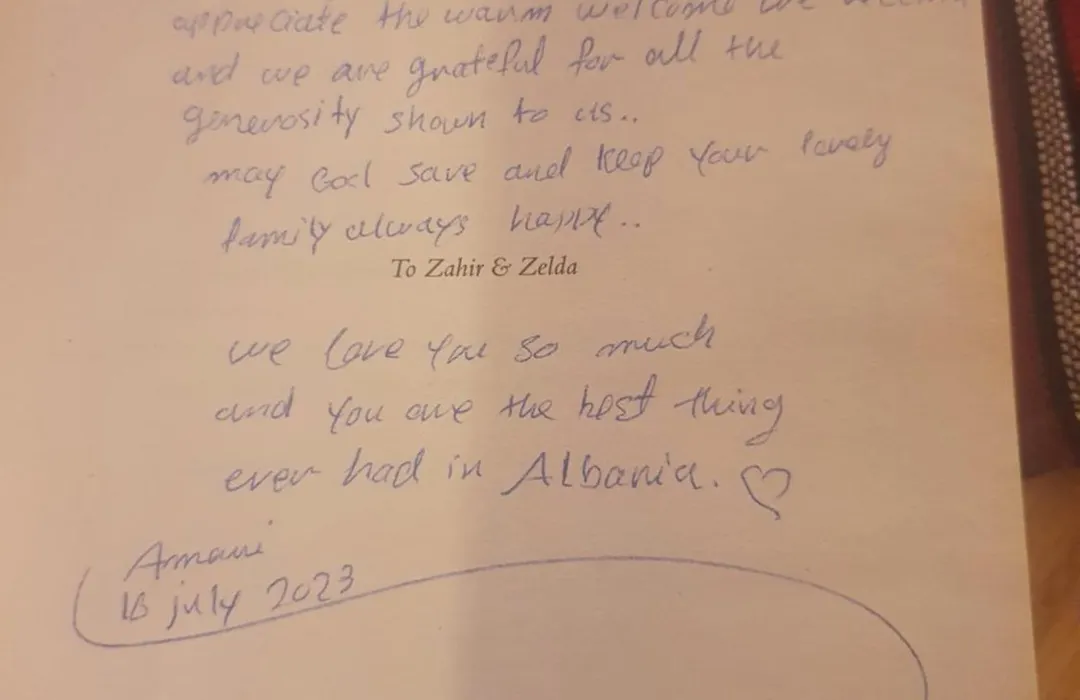 appreciate the warm welcome we
and we are grateful for all the
generosity shown to us..
may God save and keep your lovely
family always happy..
To Zahir & Zelda
we love you so much
and you are the best thing
ever had in Albania. ♡
Amani
16 july 2023